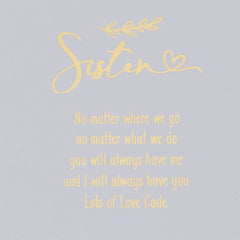 Sister
No matter where we go
no matter what we do
you will always have me
and I will always have you
Lots of Love Cade